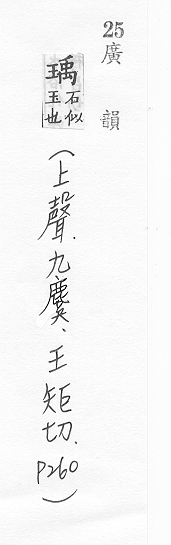 25
廣韻
瑀
石似
玉也
（上聲.九麌、王矩切.P260）